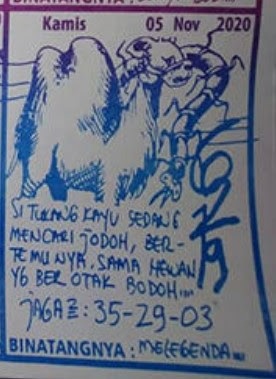 BINATANGNYA :
Kamis 05 Nov 2020
SI TUKANG KAYU SEDANG
MENCARI JODOH, BER-
TEMUNYA SAMA HEWAN
YG BER OTAK BODOH....
JAGA2 : 35-29-03
BINATANGNYA : MELEGENDA...